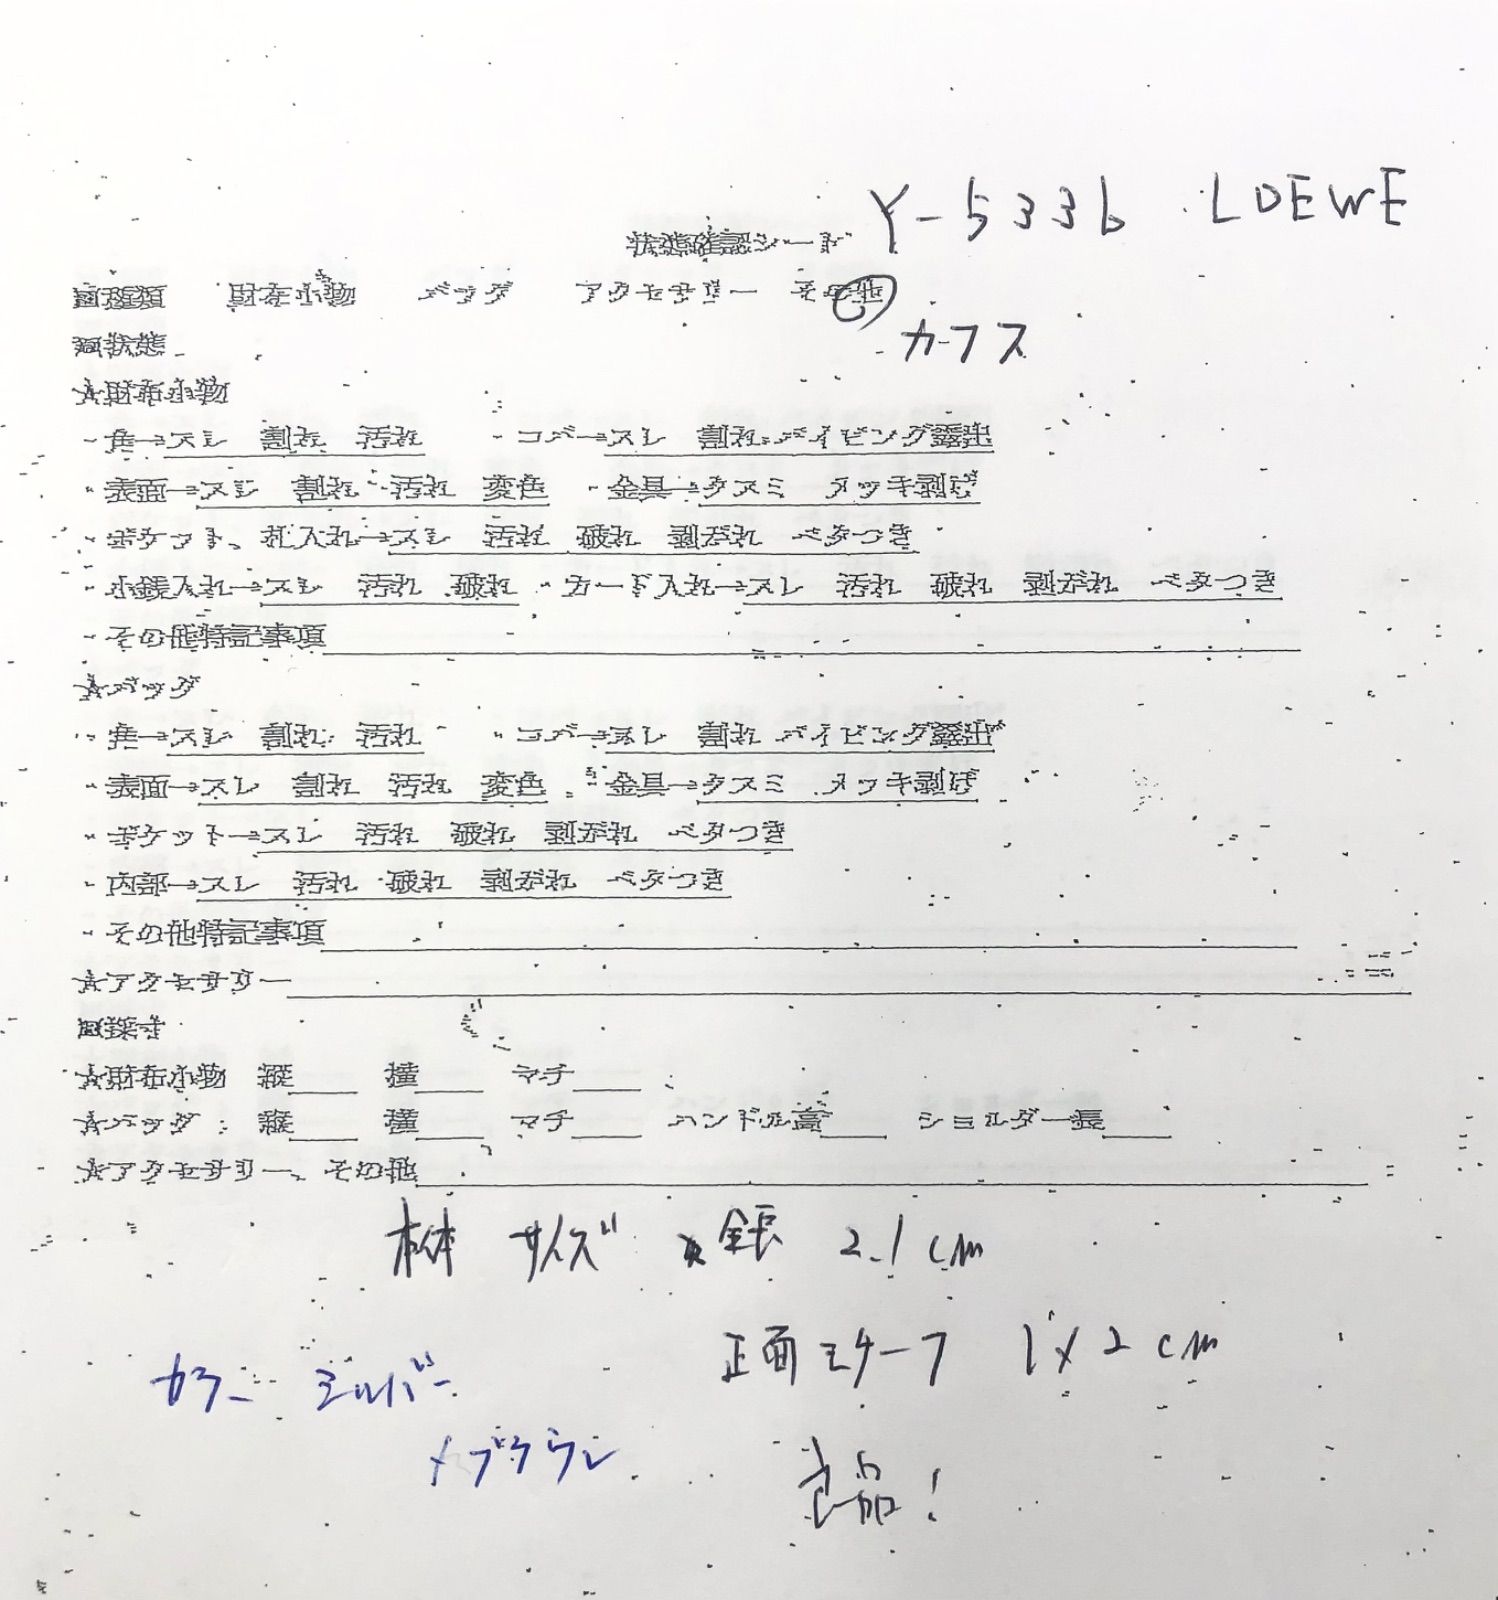 Y-5336 LOEWE
状態確認シート
■種類 財布小物 バッグ アクセサリー その他
カフス
■状態
☆財布小物
・角→スレ 割れ 汚れ ・コバ→スレ 割れ パイピング露出
・表面→スレ 割れ 汚れ 変色 ・金具→クスミ メッキ剥げ
・ポケット、札入れ→スレ 汚れ 破れ 剥がれ ベタつき
・小銭入れ→スレ 汚れ 破れ ・カード入れ→スレ 汚れ 破れ 剥がれ ベタつき
・その他特記事項
☆バッグ
・角→スレ 割れ 汚れ ・コバ→スレ 割れ パイピング露出
・表面→スレ 割れ 汚れ 変色 ・金具→クスミ メッキ剥げ
・ポケット→スレ 汚れ 破れ 剥がれ ベタつき
・内部→スレ 汚れ 破れ 剥がれ ベタつき
・その他特記事項
☆アクセサリー
■採寸
☆財布小物 縦 横 マチ
☆バッグ 縦 横 マチ ハンドル高 ショルダー長
☆アクセサリー、その他
本体サイズ 全長 2.1cm
正面モチーフ 1×2cm
カラー シルバー
×ブラウン
良品!